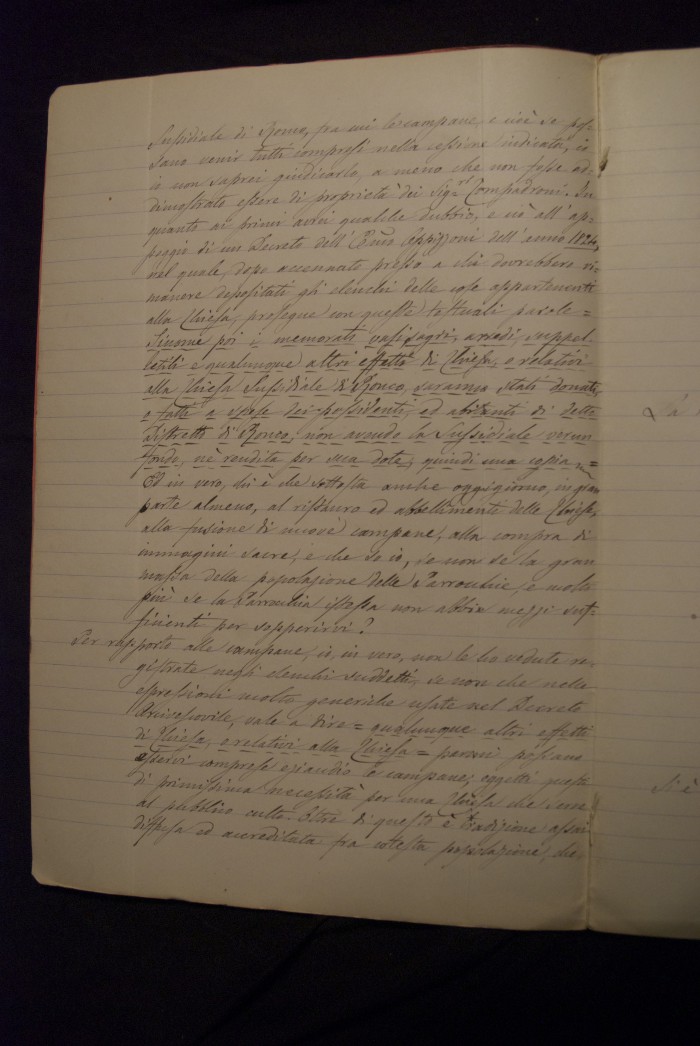 Sussidiale di Ronco, fra cui le campane, e cioè se pos-
sano venir tutti compresi nella cessione indicata, io
io non saprei giudicarlo, a meno che non fosse ad-
dimostrato essere di proprietà dei Sig.ri Compadroni. In
quanto ai primi avrei qualche dubbio, e ciò all'ap-
poggio di un Decreto dell' Oppizzoni dell'anno 1824,
nel quale, dopo accennato presso a chi dovrebbero ri-
manere depositati gli elenchi delle cose appartenenti
alla Chiesa, prosegue con queste testuali parole =
Siccome poi i memorati vasi sagri, arredi, suppel-
lettili e qualunque altri effetti di Chiesa, o relativi
alla Chiesa Sussidiale di Ronco, saranno stati donati,
o fatti a spese dei possidenti, ed abitanti di detto
Distretto di Ronco, non avendo la Sussidiale verun
fondo, nè rendita per sua dote; quindi una copia =
Ed in vero, chi è che sottostà anche oggigiorno, in gran
parte almeno, al ristauro ed abbellimenti delle Chiese,
alla fusione di nuove campane, alla compra di
immagini sacre, e che so io, se non se la gran
massa della popolazione delle Parrocchie, e molto
più se la Parrocchia istessa non abbia mezzi suf-
ficienti per sopperirvi?
Per rapporto alle campane, io, in vero, non le ho vedute re-
gistrate negli elenchi suddetti, se non che nelle
espressioni molto generiche usate nel Decreto
Arcivescovile, vale a dire = qualunque altri effetti
di Chiesa, o relativi alla Chiesa = parmi possano
esservi comprese eziandio le campane; oggetti questi
di primissima necessità per una Chiesa che serve
al pubblico culto. Oltre di questo è tradizione assai
diffusa ed accreditata fra cotesta popolazione, che,
La
Si è